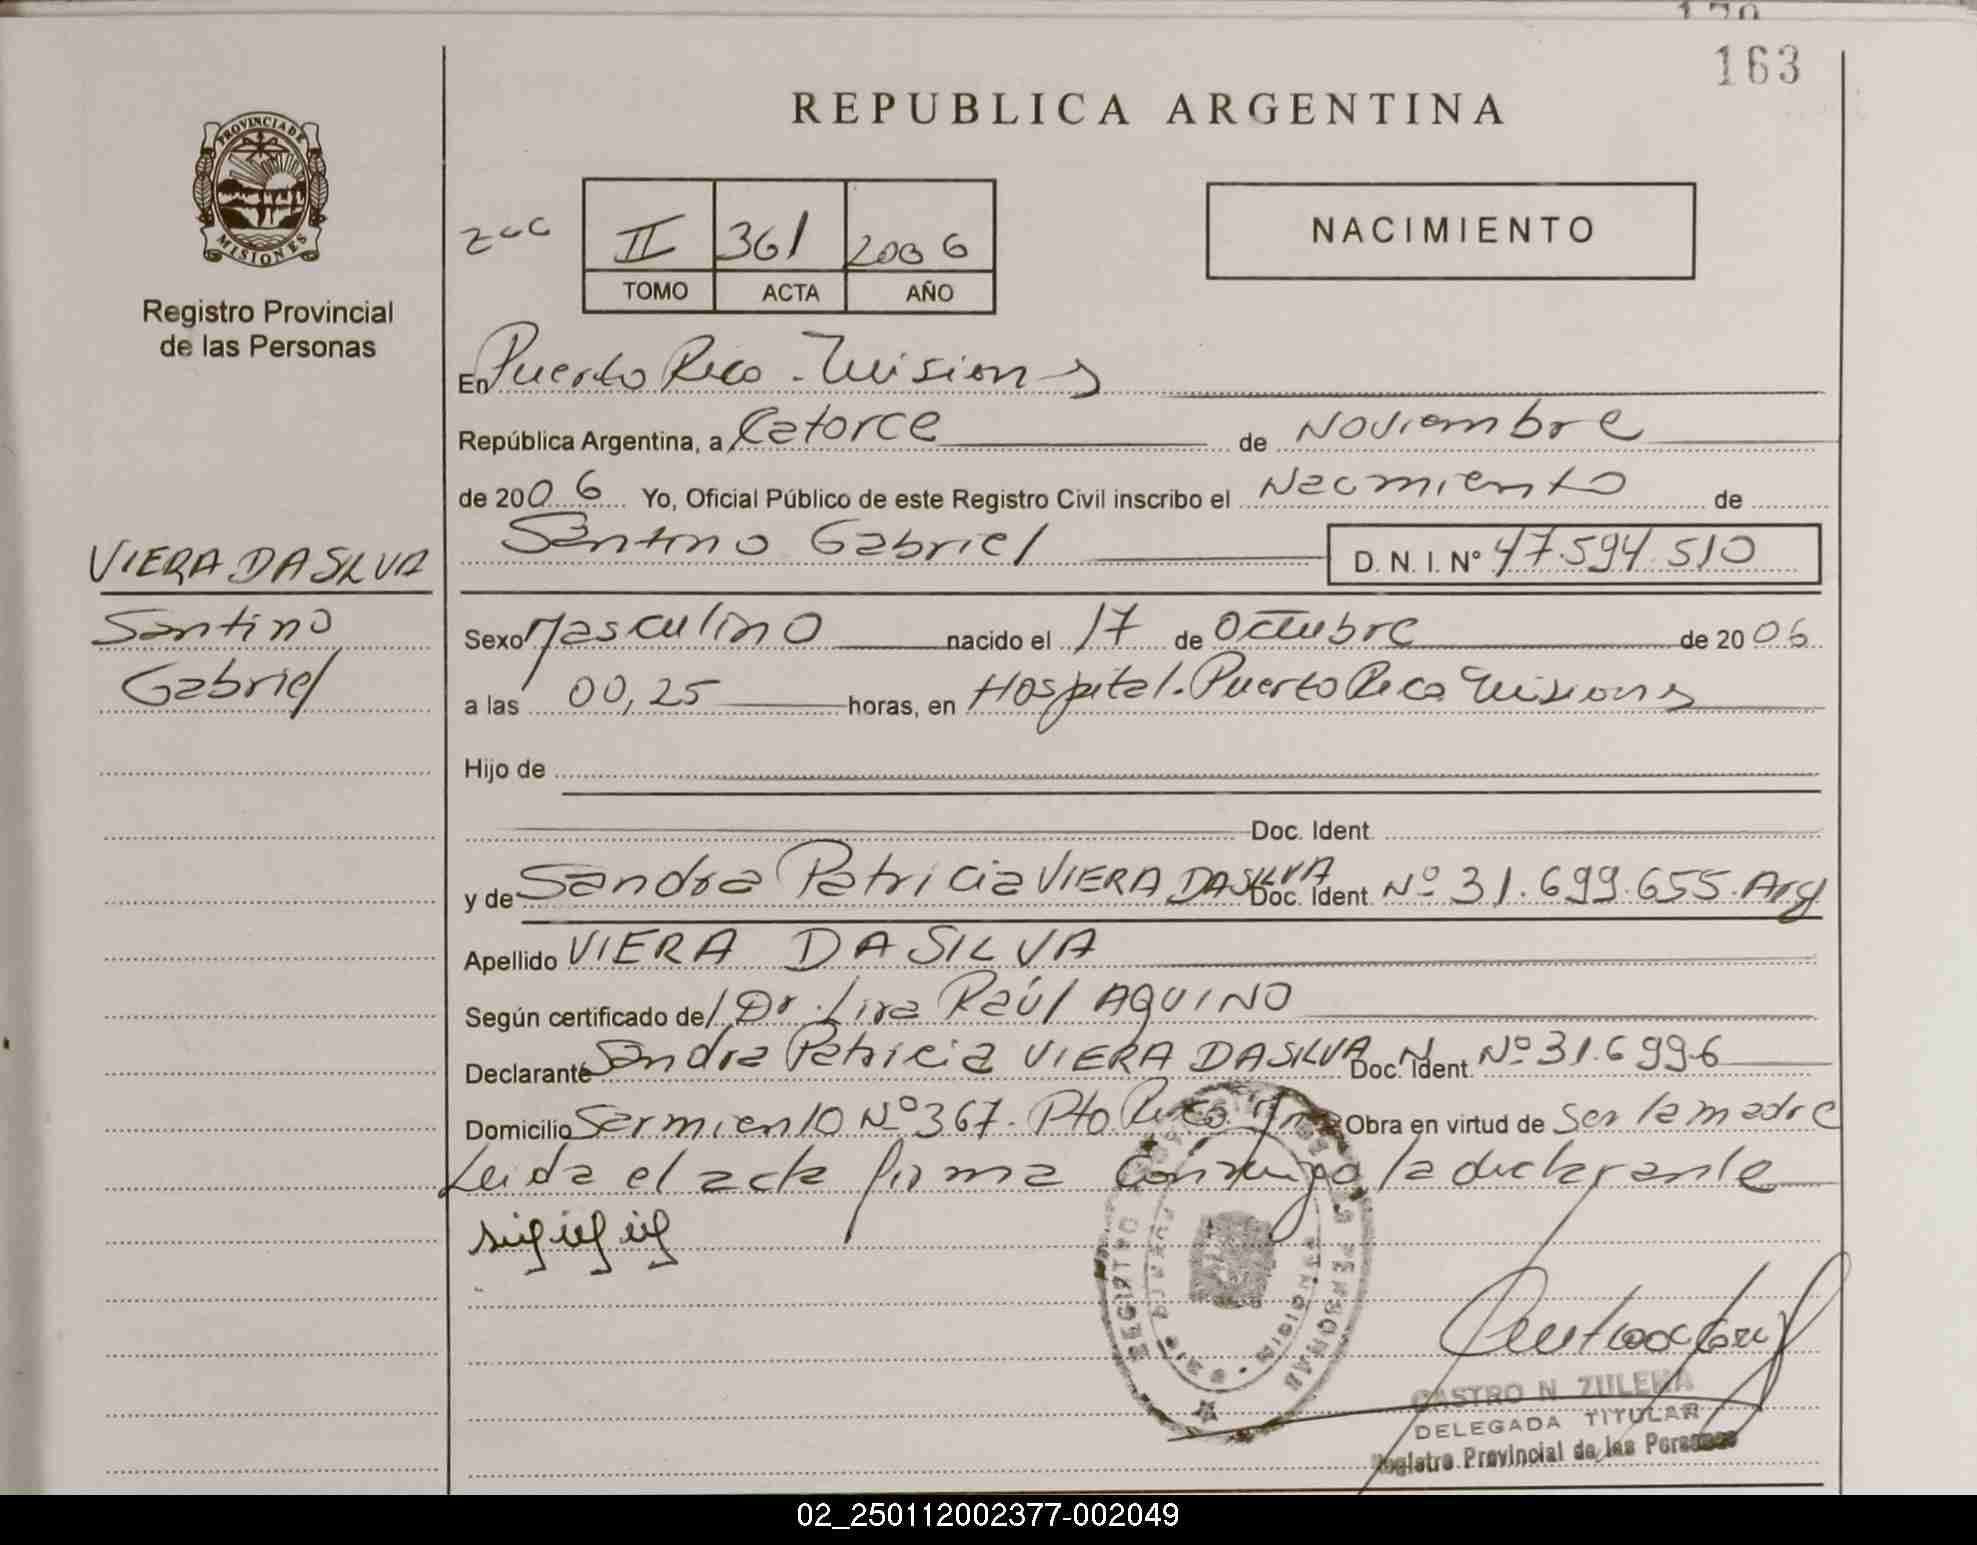 163
REPUBLICA ARGENTINA
PROVINCIA DE
MISIONES
Registro Provincial
de las Personas
II 361 2006
TOMO ACTA AÑO
NACIMIENTO
En Puerto Rico - Misiones
República Argentina, a Catorce de Noviembre
de 2006 Yo, Oficial Público de este Registro Civil inscribo el Nacimiento de
Santino Gabriel D. N. I. Nº 47.594.510
VIERA DA SILVA
Santino
Gabriel
Sexo Masculino nacido el 17 de Octubre de 2006
a las 00,25 horas, en Hospital. Puerto Rico Misiones
Hijo de
Doc. Ident.
y de Sandra Patricia VIERA DA SILVA Doc. Ident. Nº 31.699.655. Arg
Apellido VIERA DA SILVA
Según certificado del Dr. Lira Raúl AQUINO
Declarante Sandra Patricia VIERA DA SILVA Doc. Ident. Nº 31.6996
Domicilio Sarmiento Nº 367. Pto Rico Obra en virtud de Ser la madre
Leida el acta firma conmigo la declarante
CASTRO N. ZULEMA
DELEGADA TITULAR
Registro Provincial de las Personas
02_250112002377-002049